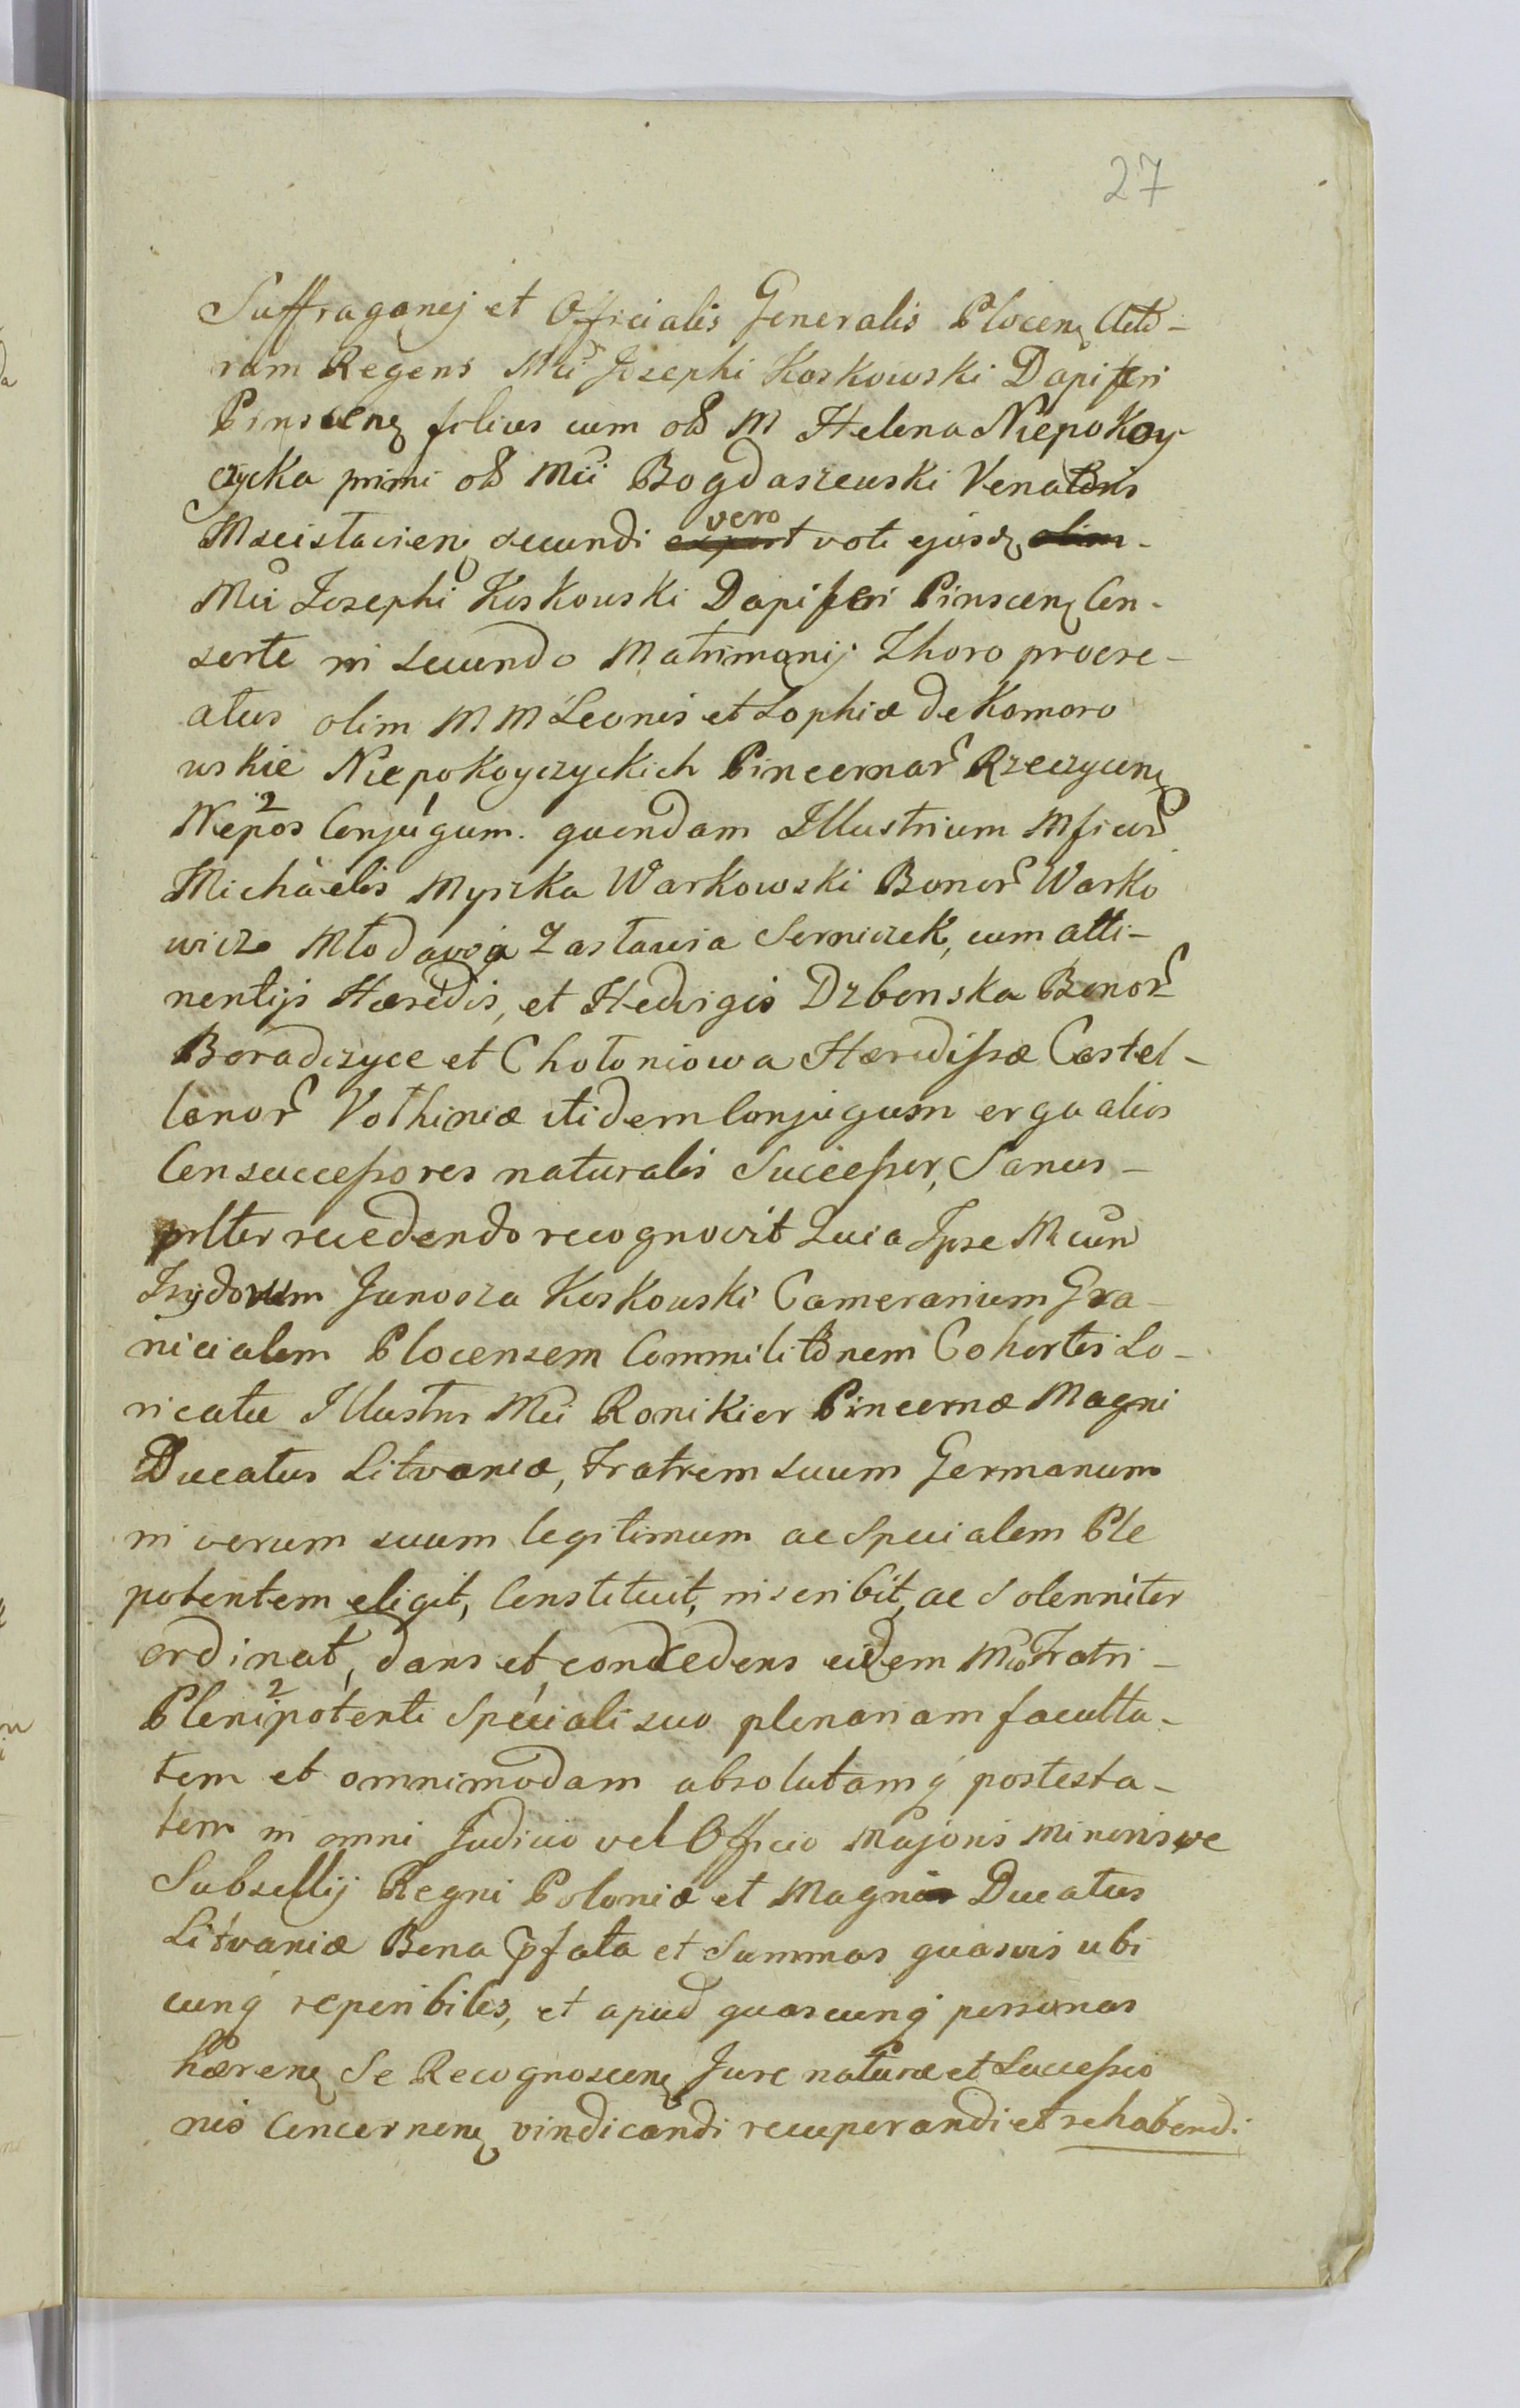 27
Suffraganej et Officialis Generalis Plocenę Acto-
rum Regens Mci Josephi Koskowski Dapiferi
Pinscenę filius cum olȣ M Helena Niepokoy
czycka primi olȣ Mci Bogdaszewski Venatoris
Mscistavienę secundi vero voti ejusdę
Mci Josephi Koskowski Dapiferi Pinscenę Con-
sorte in secundo Matrimonij Thoro procre-
atus olim M M Leonis et Zophiæ de Komoro
wskie Niepokoyczyckich Pincernar Rzeczycenę
Nepos Conjugum. quendam Illustrium Mficor
Michäelis Myszka Warkowski Bonor Warko
wicze Młodawoja Zastawia Serniczek, cum atti-
nentijs Hæredis, et Hedvigis Dzbonska Bonor
Boradczyce et Chotoniowa Hæredissæ Castel-
lanor Volhiniæ itidem Conjugum erga alios
Consuccessores naturalis Successor, Sanus-
pltter recedendo recognovit Quia Ipse Mcum
Izydorum Junosza Koskowski Camerarium Gra-
nicialem Plocensem Commilitonem Cohortis Lo-
ricatæ Illustris Mci Ronikier Pincernæ Magni
Ducatus Litvaniæ, Fratrem suum Germanum
in verum suum legitimum ac Specialem Ple
potentem eligit, Constituit, inscribit, ac Solenniter
ordinat, dans et concedens eidem Mco Fratri-
Plenipotenti Speciali suo plenariam faculta-
tem et omnimodam absolutamq́ postesta-
tem in omni Judicio vel Officio Majoris Minorisve
Subsellij Regni Poloniæ et Magni Ducatus
Litvaniæ Bona pfata et Summas quasvis ubi
cunq́ reperibiles, et apud quascunq́ personas
hærenę Se Recognoscenę Jure naturæ et Successio
nis Concernenę vindicandi recuperandi et rehabendi